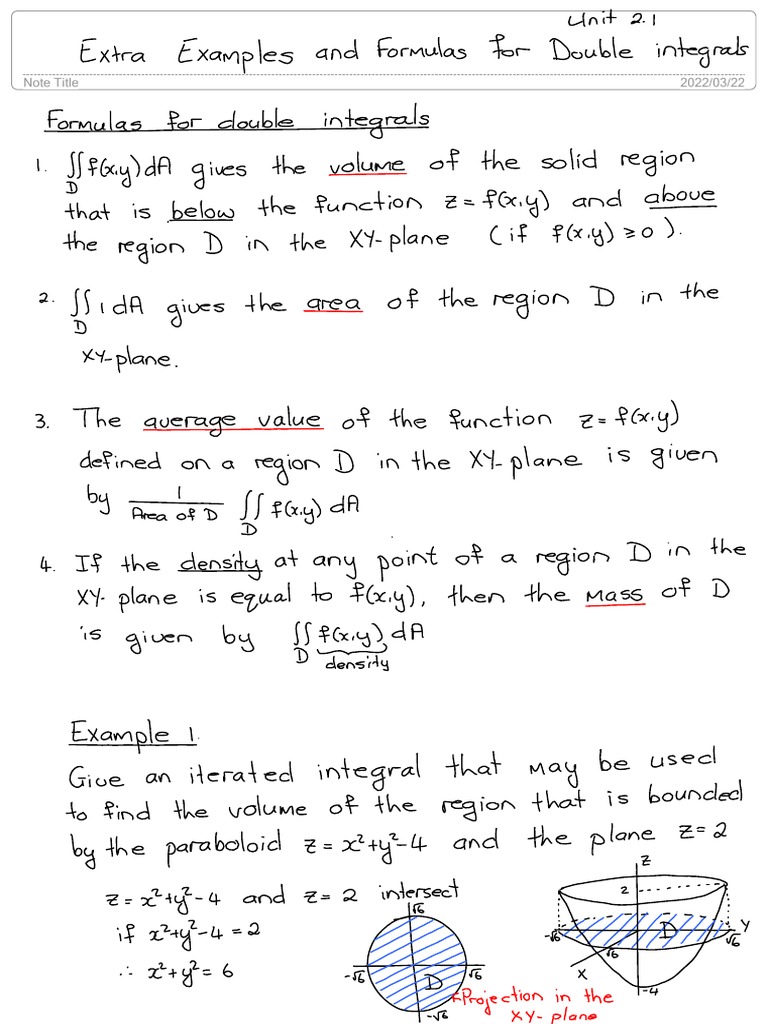 Unit 2.1
Extra Examples and Formulas for Double integrals
Note Title
2022/03/22
Formulas for double integrals
1. ∬_D f(x,y) dA gives the volume of the solid region
that is below the function z = f(x,y) and above
the region D in the XY-plane (if f(x,y) ≥ 0).
2. ∬_D 1 dA gives the area of the region D in the
XY-plane.
3. The average value of the function z = f(x,y)
defined on a region D in the XY-plane is given
by 1/(Area of D) ∬_D f(x,y) dA
4. If the density at any point of a region D in the
XY-plane is equal to f(x,y), then the mass of D
is given by ∬_D f(x,y) dA
density
Example 1.
Give an iterated integral that may be used
to find the volume of the region that is bounded
by the paraboloid z = x²+y²-4 and the plane z = 2
z = x²+y²-4 and z = 2 intersect
if x²+y²-4 = 2
∴ x²+y² = 6
√6
-√6
√6
D
-√6
Projection in the
XY-plane
Z
2
-√6
D
Y
√6
√6
X
-4